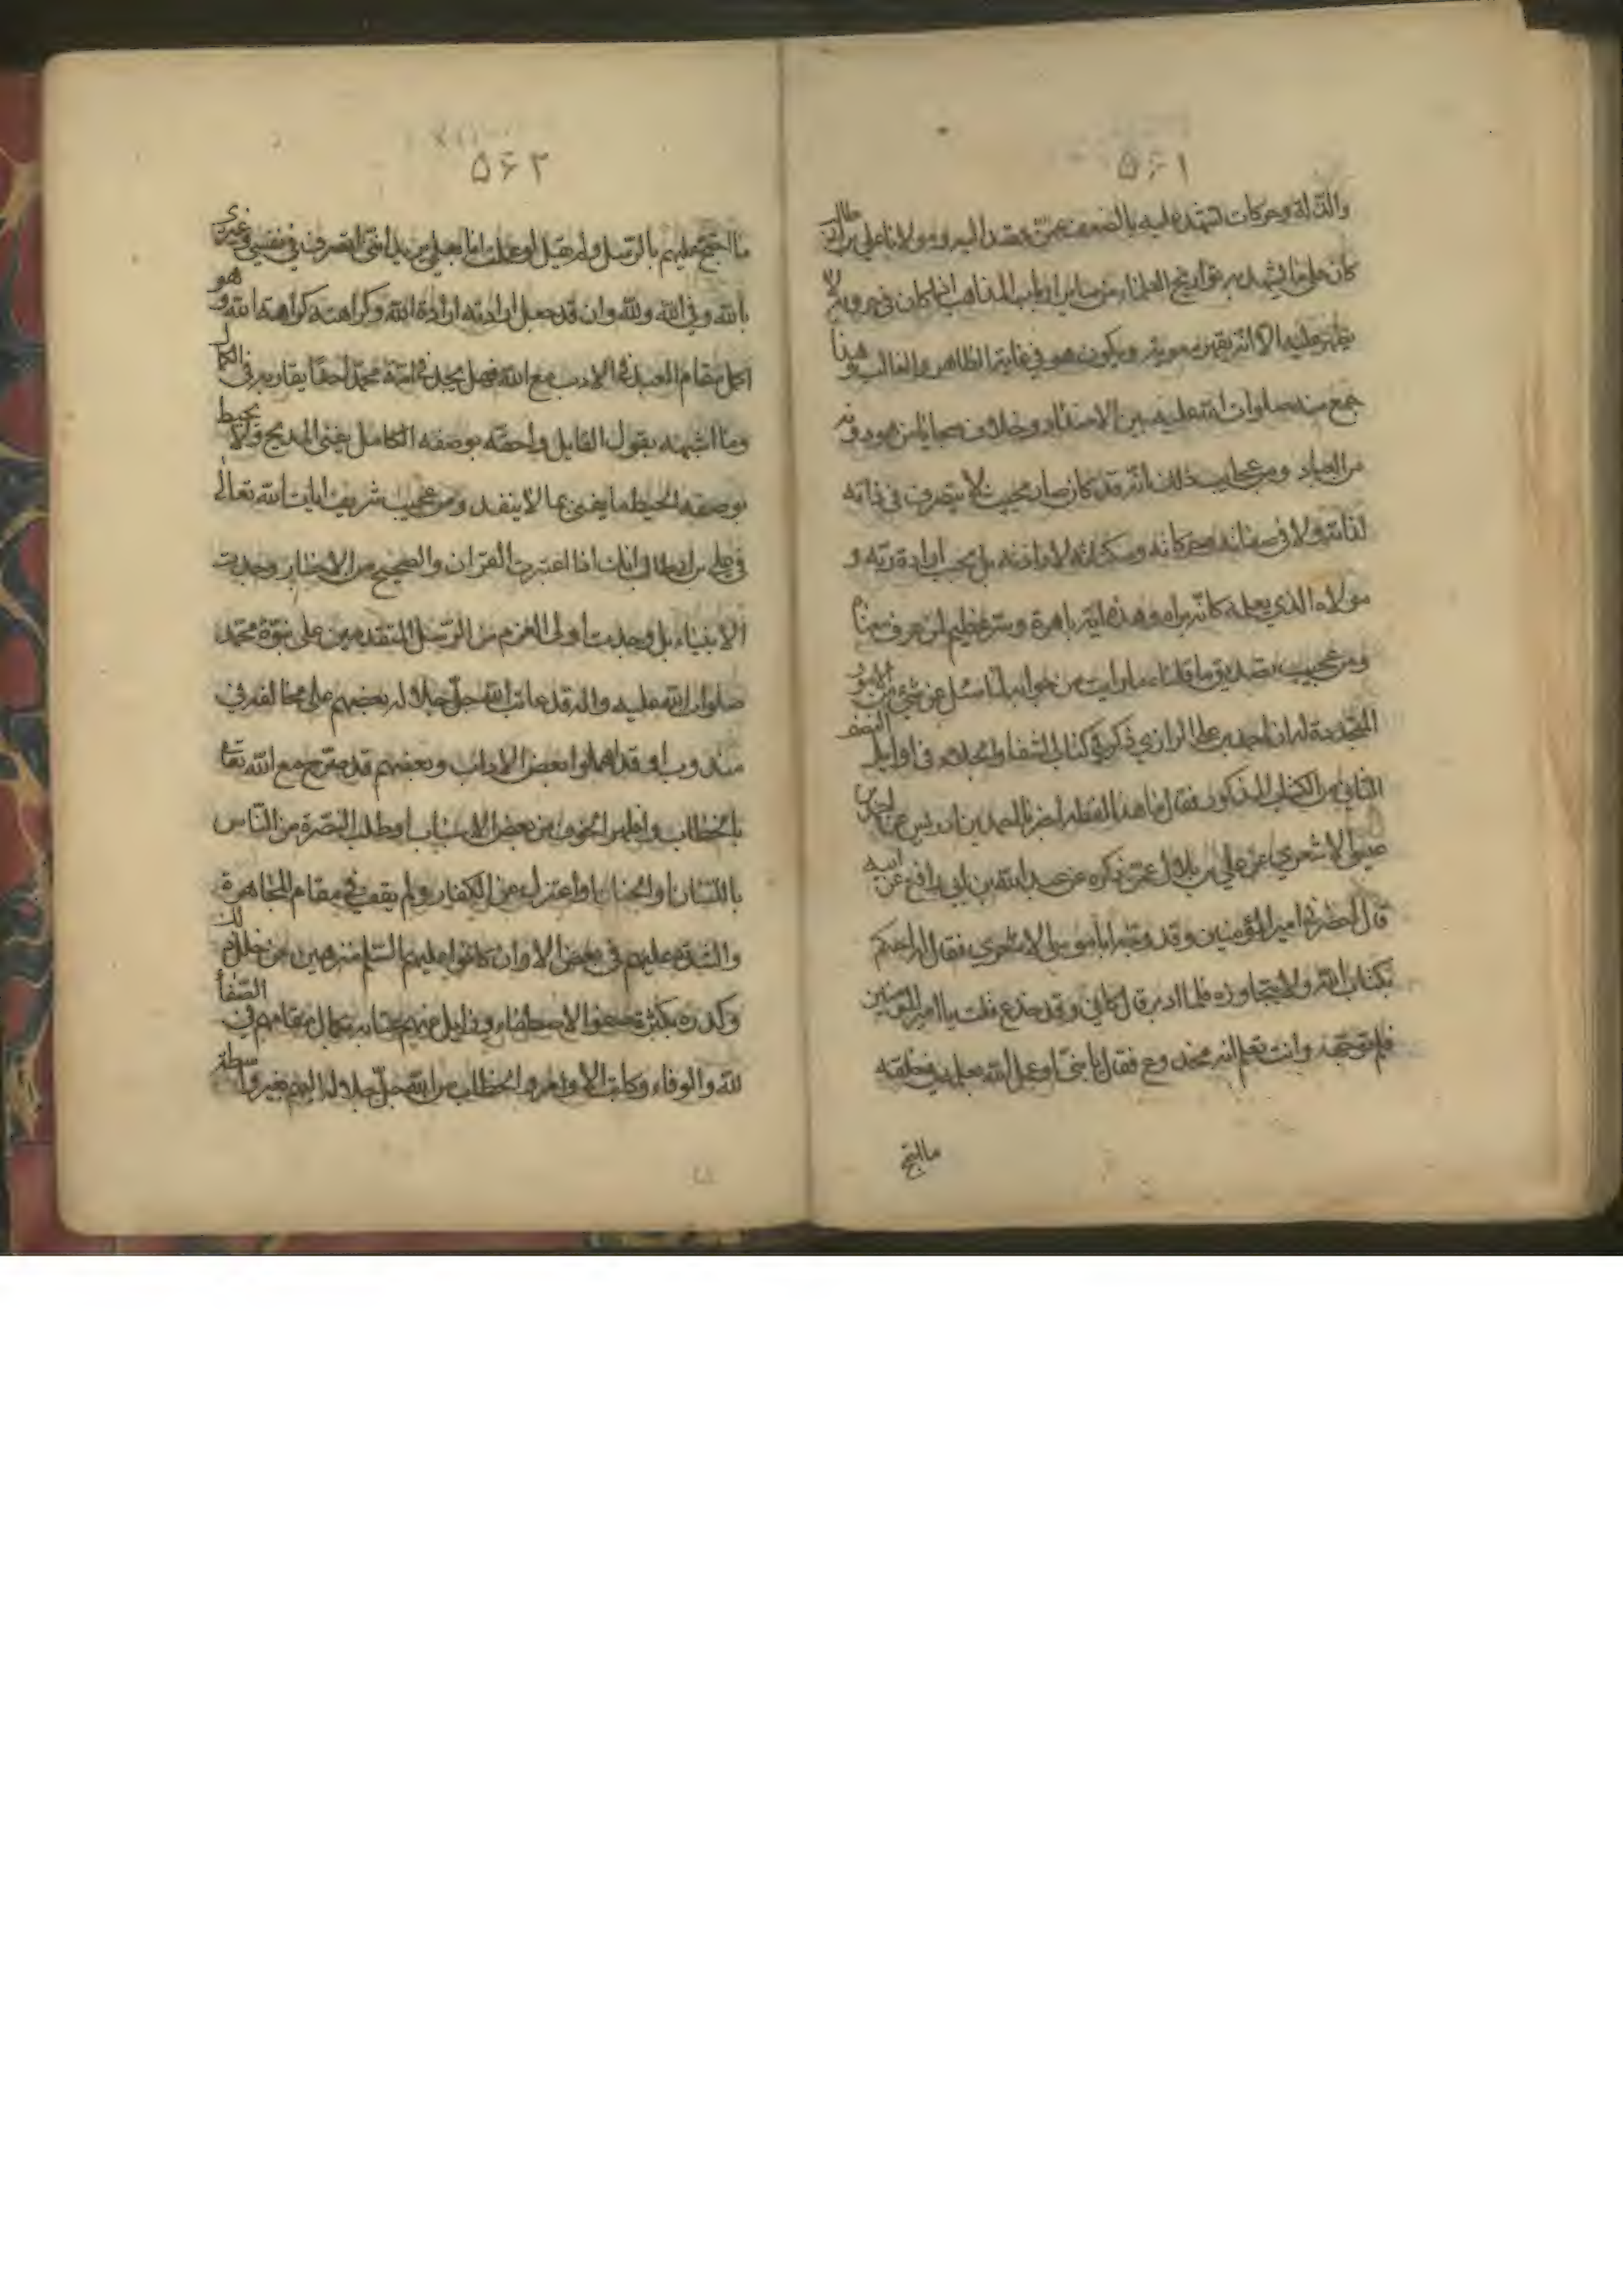 ۵۶۱
والذلة وحركات تشهد عليه بالضعف عمن يقصد اليه ومولانا علي بن ابي طالب
كان على ما يشهد به تواريخ العلماء من ساير ارباب المذاهب انه ما كان في حروبه لا
يظهر عليه الا انه يقهر ويكون هو في غاية الظاهر والغالب وهذا
جمع منه صلوات الله عليه بين الاضداد وخلاف سجايا من
من العباد ومن عجايب ذلك انه قد كان صار بحيث لا يتصرف في ذاته
لذاته ولا في صفاته وحركاته وسكناته لارادته بل بحسب ارادة ربه و
مولاه الذي يعبده كانه يراه وهذه اية باهرة وسر عظيم لمن عرف معناه
ومن عجيب تصديق ما قلناه ما رايت من جوابه لما سئل عن شئ من الامور
المتجددة له ان احمد بن علي الرازي ذكر في كتاب الشفا والجلاء في اوايل النصف
الثاني من الكتاب المذكور فقال ما هذا لفظه اخبرنا احمد بن ادريس عن
عيسى الاشعري عن علي بن بلال عمن ذكره عن عبد الله بن ابي رافع عن ابيه
قال حضرت امير المؤمنين وقد وجه ابا موسى الاشعري فقال له احكم
بكتاب الله ولا تتجاوزه فلما ادبر قال كاني وقد خدع قلت يا امير المؤمنين
فلم توجهه وانت تعلم انه مخدوع فقال يا بني لو عمل الله بعلمه في خلقه
ما احتج
۵۶۲
ما احتج عليهم بالرسل ولم يقبل لو عملت انا بعلمي يريد انني اتصرف في نفسي وغيري
بالله وفي الله ولله وان قد جعل ارادته ارادة الله وكراهته كراهة الله وهو
اكمل مقام العبد في الادب مع الله فهل يجد في امة محمد احدا يقاربه في الكمال
وما اشبهه بقول القايل واحقه بوصفه الكامل يفنى المديح ولا يحيط
بوصفه ايحيط ما يفنى بما لا ينفد ومن عجيب شريف ايات الله تعالى
في علي بن ابي طالب انك اذا اعتبرت القران والصحيح من الاخبار وجدت
الانبياء بل وجدت اولى العزم من الرسل المتقدمين على نبوة محمد
صلوات الله عليه واله قد عاتب الله جل جلاله بعضهم على مخالفة في
مندوب او قد اهملوا بعض الاداب وبعضهم قد صرح مع الله تعالى
بالخطاب واظهر الخوف من بعض الاسباب او طلب النصرة من الناس
باللسان او الجنان او اعتزل عن الكفار ولم يقف في مقام المجاهرة
والشدة عليهم في بعض الاوان كانوا عليهم السلم منزهين عن خلل
وكدر بكثرة الاصطفاء وقليل بكمال مقامهم في الصفاء
لله والوفاء وكانت الاوامر والخطاب من الله جل جلاله اليهم بغير واسطة